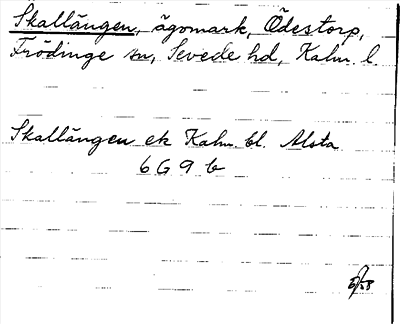 Skallängen, ägomark, Ödestorp,
Frödinge sn, Sevede hd, Kalm. l
Skallängen ek Kalm. bl. Alsta
6 G 9 b